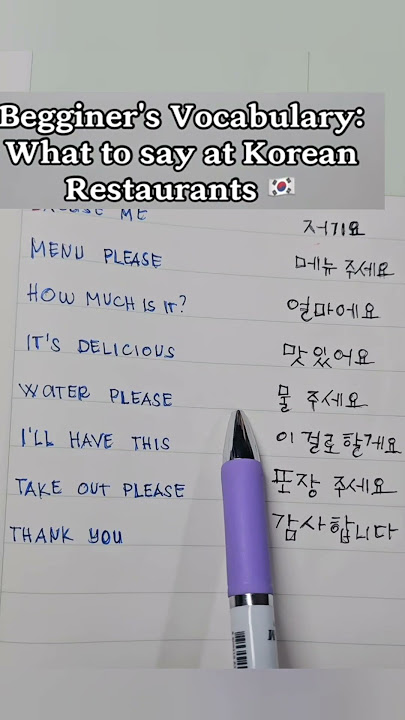 Begginer's Vocabulary:
What to say at Korean
Restaurants 🇰🇷
EXCUSE ME 저기요
MENU PLEASE 메뉴 주세요
HOW MUCH IS IT? 얼마에요
IT'S DELICIOUS 맛있어요
WATER PLEASE 물 주세요
I'LL HAVE THIS 이걸로할게요
TAKE OUT PLEASE 포장 주세요
THANK YOU 감사합니다